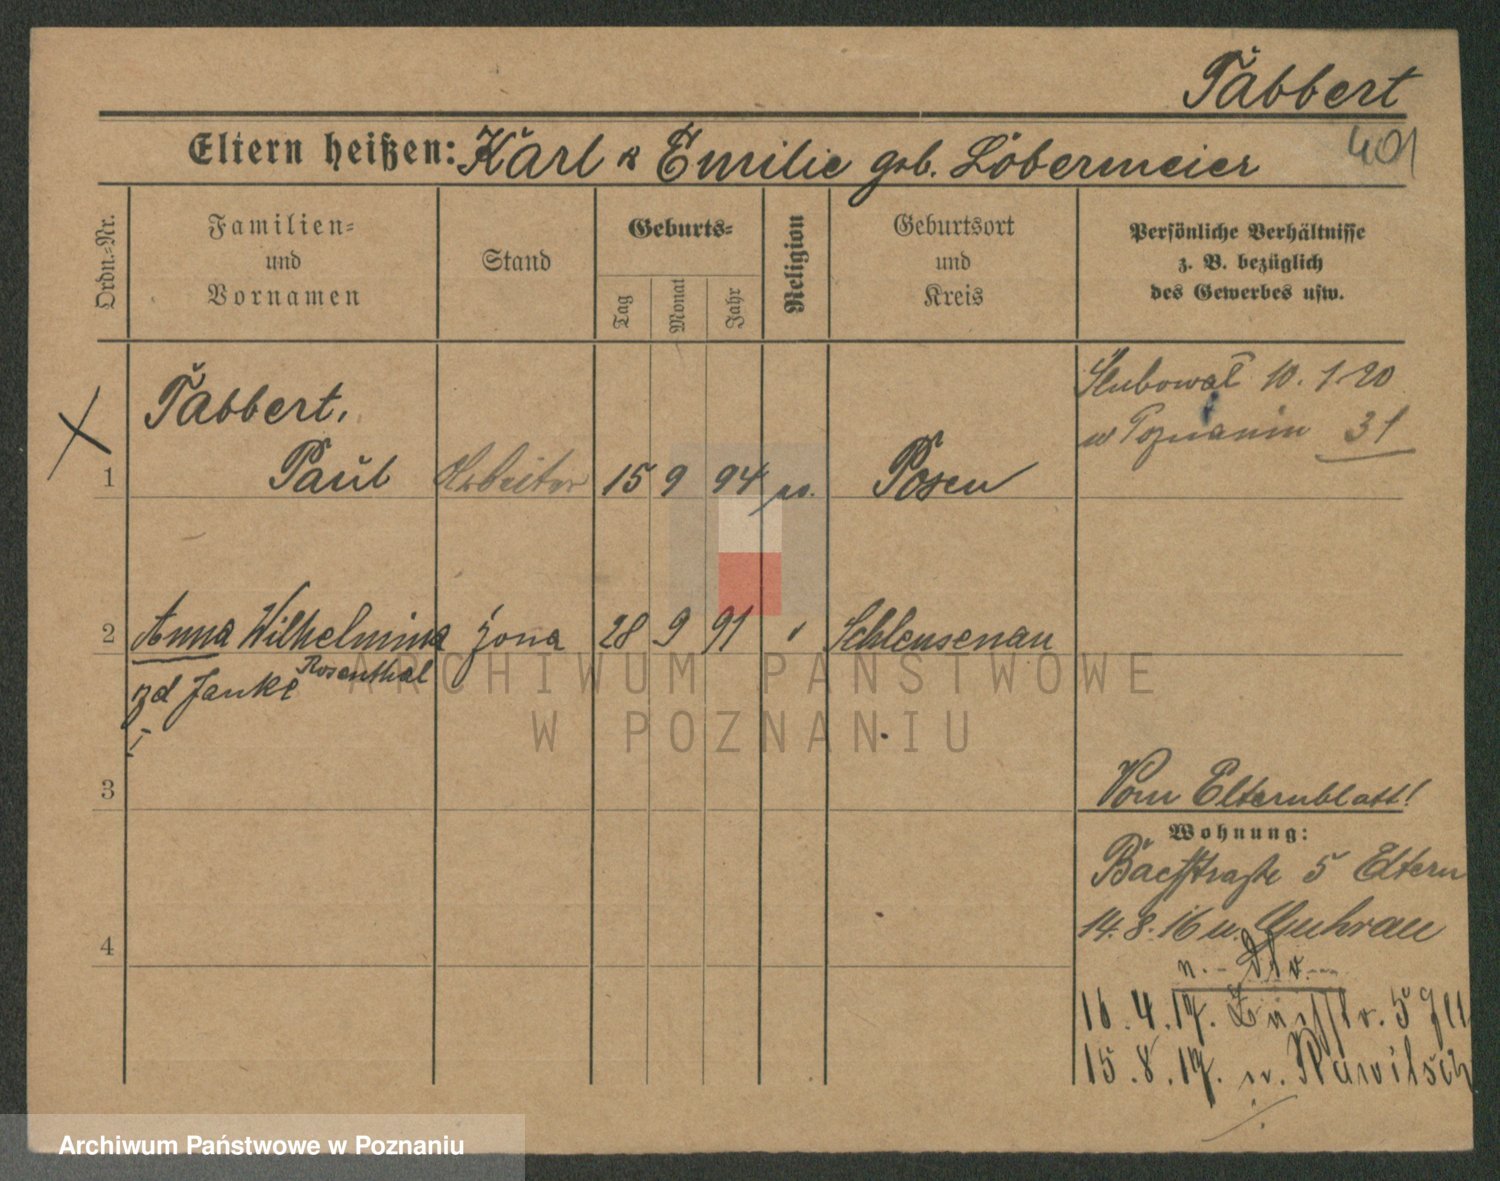 Tabbert
Eltern heißen: Karl & Emilie geb. Löbermeier
401
Ordn.-Nr.
Familien-
und
Vornamen
Stand
Geburts-
Tag
Monat
Jahr
Religion
Geburtsort
und
Kreis
Persönliche Verhältnisse
z. B. bezüglich
des Gewerbes usw.
Tabbert,
1 Paul Arbeiter 15 9 94 Posen
Slubował 10. 1. 20
w Poznaniu 31
2 Anna Wilhelmina żona 28 9 91 Schleusenau
Rosenthal
zd Janke
3
Vom Elternblatt!
Wohnung:
5 Eltern
14. 8. 16 Guhrau
4
16. 4. 17. 5
15. 8. 17. Rawitsch
ARCHIWUM PAŃSTWOWE
W POZNANIU
Archiwum Państwowe w Poznaniu